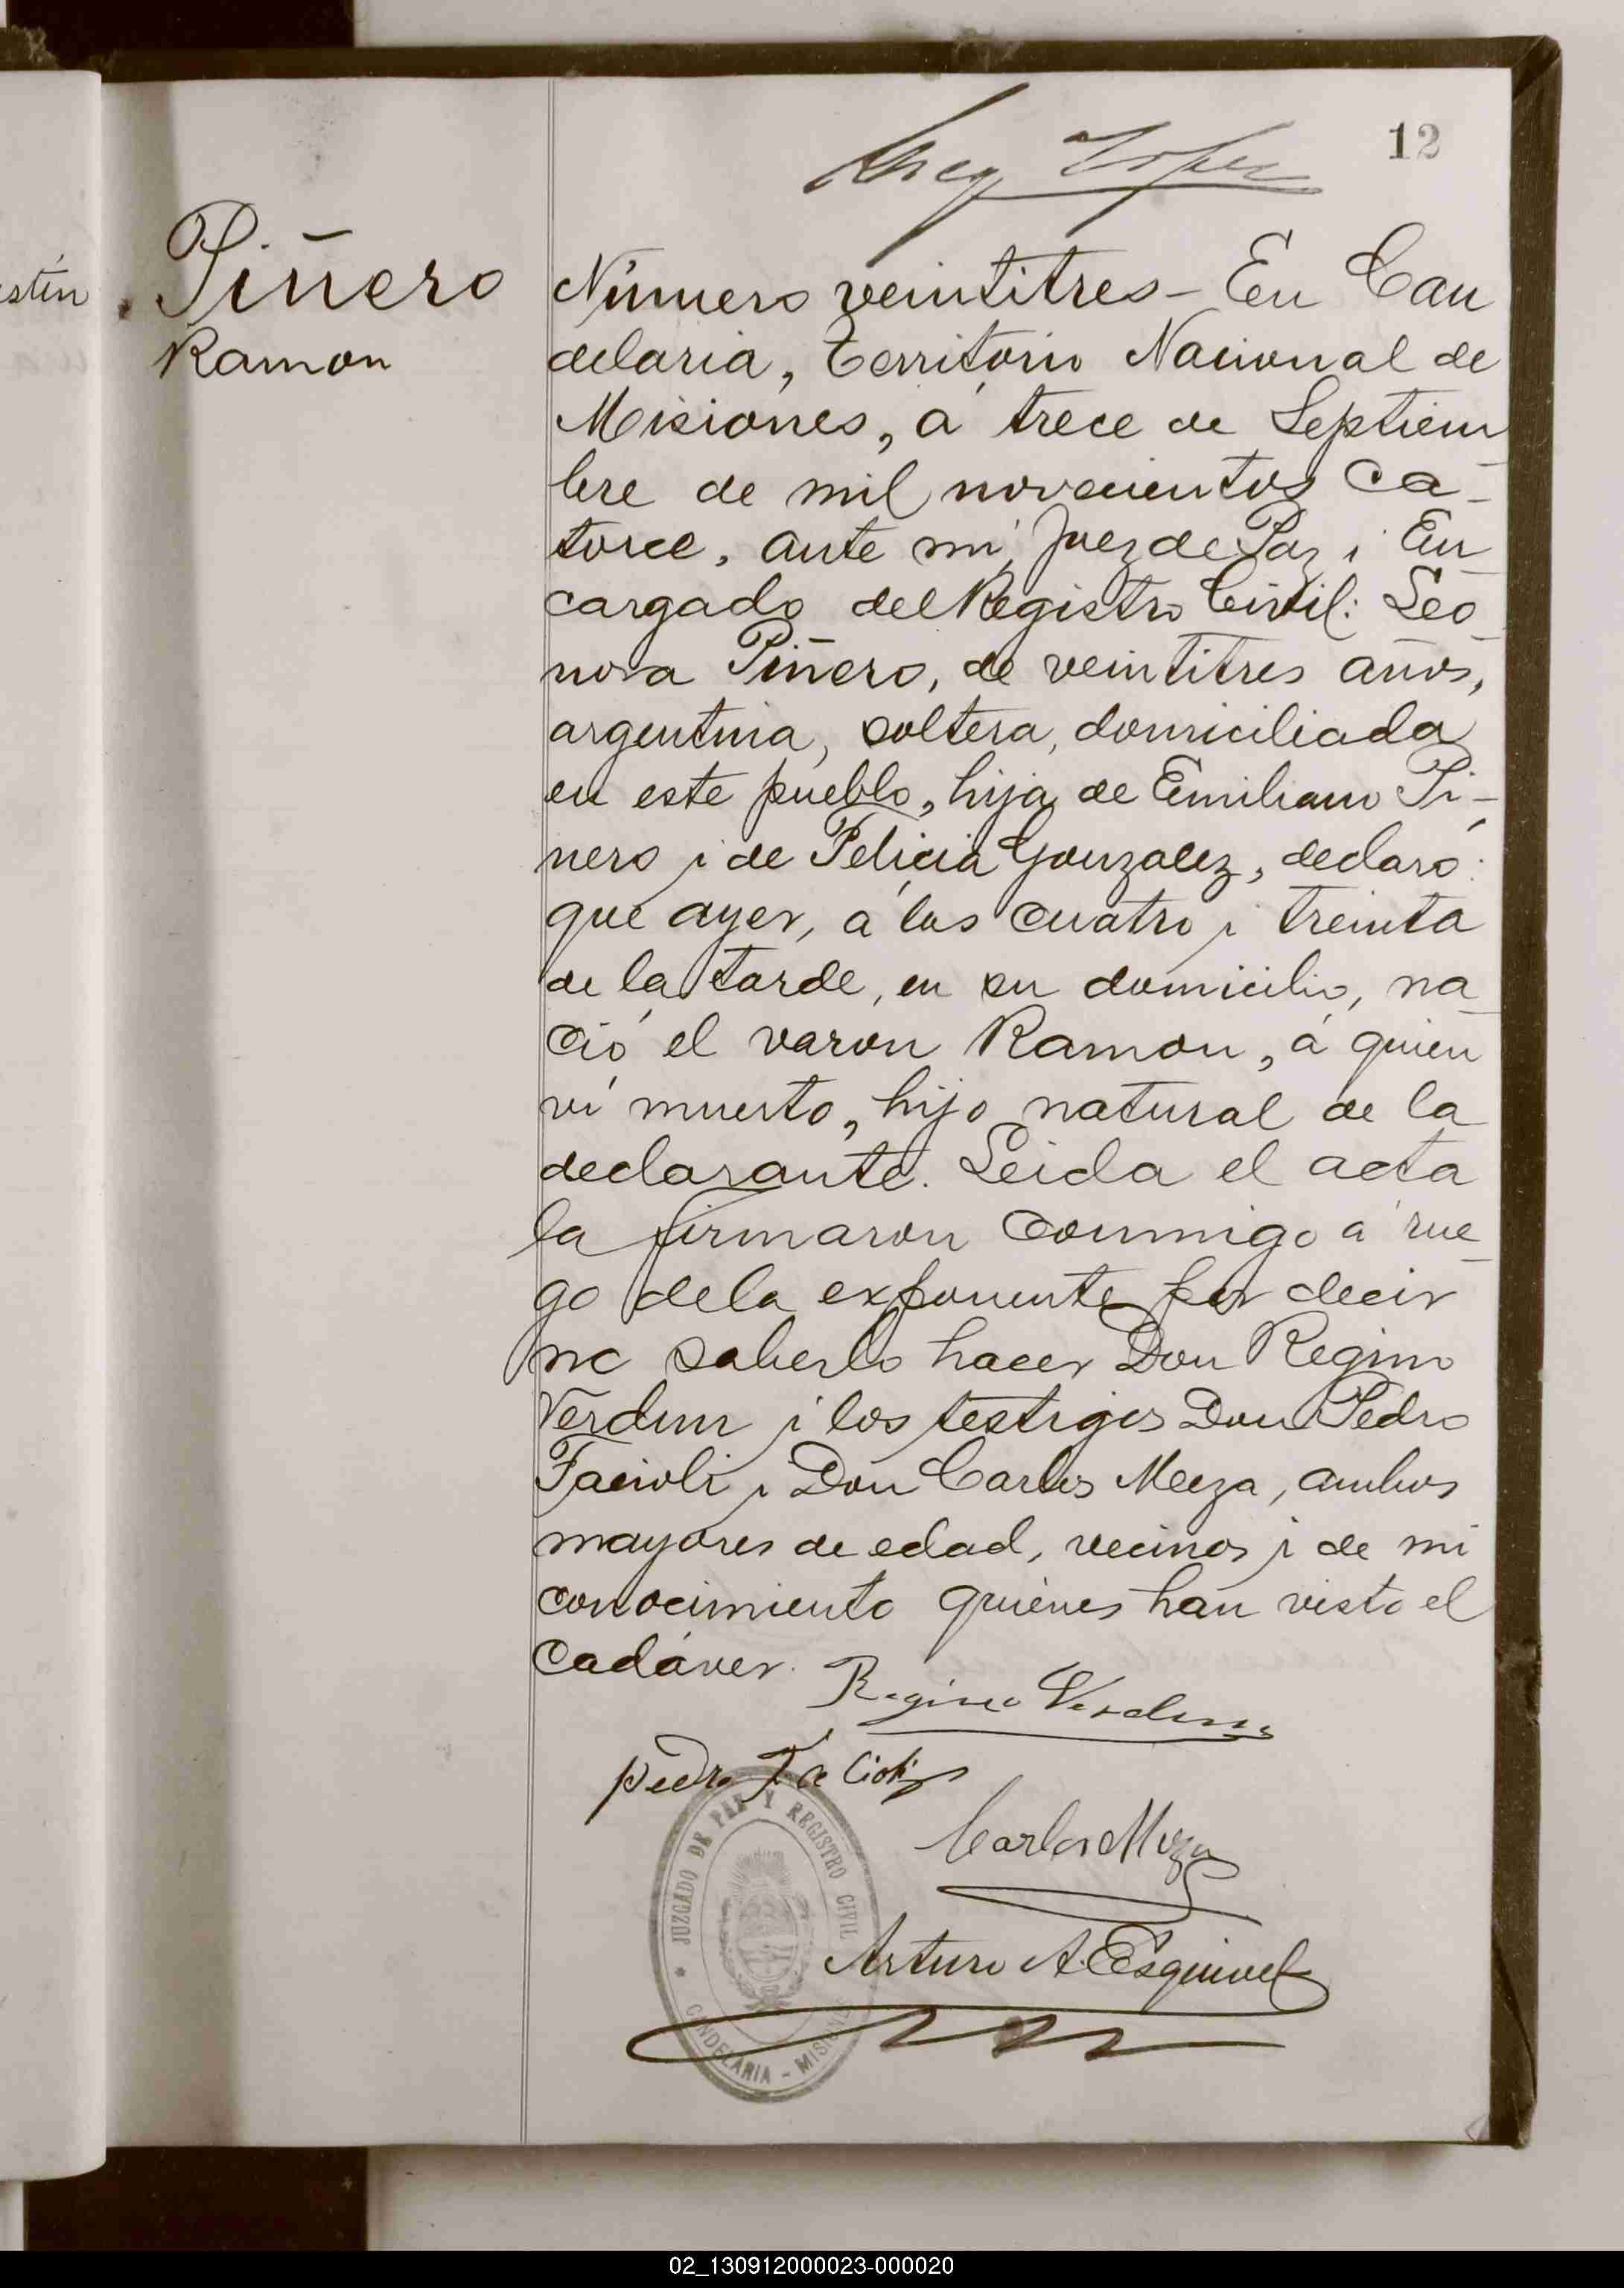 12
stin
Piñero
Ramon
Número veintitres - En Can
delaria, Territorio Nacional de
Misiones, á trece de Septiem
bre de mil novecientos ca-
torce, ante mi, Juez de Paz i En
cargado del Registro Civil: Leo
nora Piñero, de veintitres años,
argentina, soltera, domiciliada
en este pueblo, hija de Emiliano Pi-
ñero i de Felicia Gonzalez, declaró:
que ayer, á las cuatro i treinta
de la tarde, en su domicilio, na
ció el varon Ramon, á quien
ví muerto, hijo natural de la
declarante. Leida el acta
la firmaron conmigo á rue
go de la exponente por decir
no saberlo hacer Don Regino
Verdun i los testigos Don Pedro
Facioli i Don Carlos Meza, ambos
mayores de edad, vecinos i de mi
conocimiento quienes han visto el
cadáver.
Regino Verdun
Pedro Facioli
Carlos Meza
Arturo A. Esquivel
JUZGADO DE PAZ Y REGISTRO CIVIL
CANDELARIA - MISIONES
02_130912000023-000020